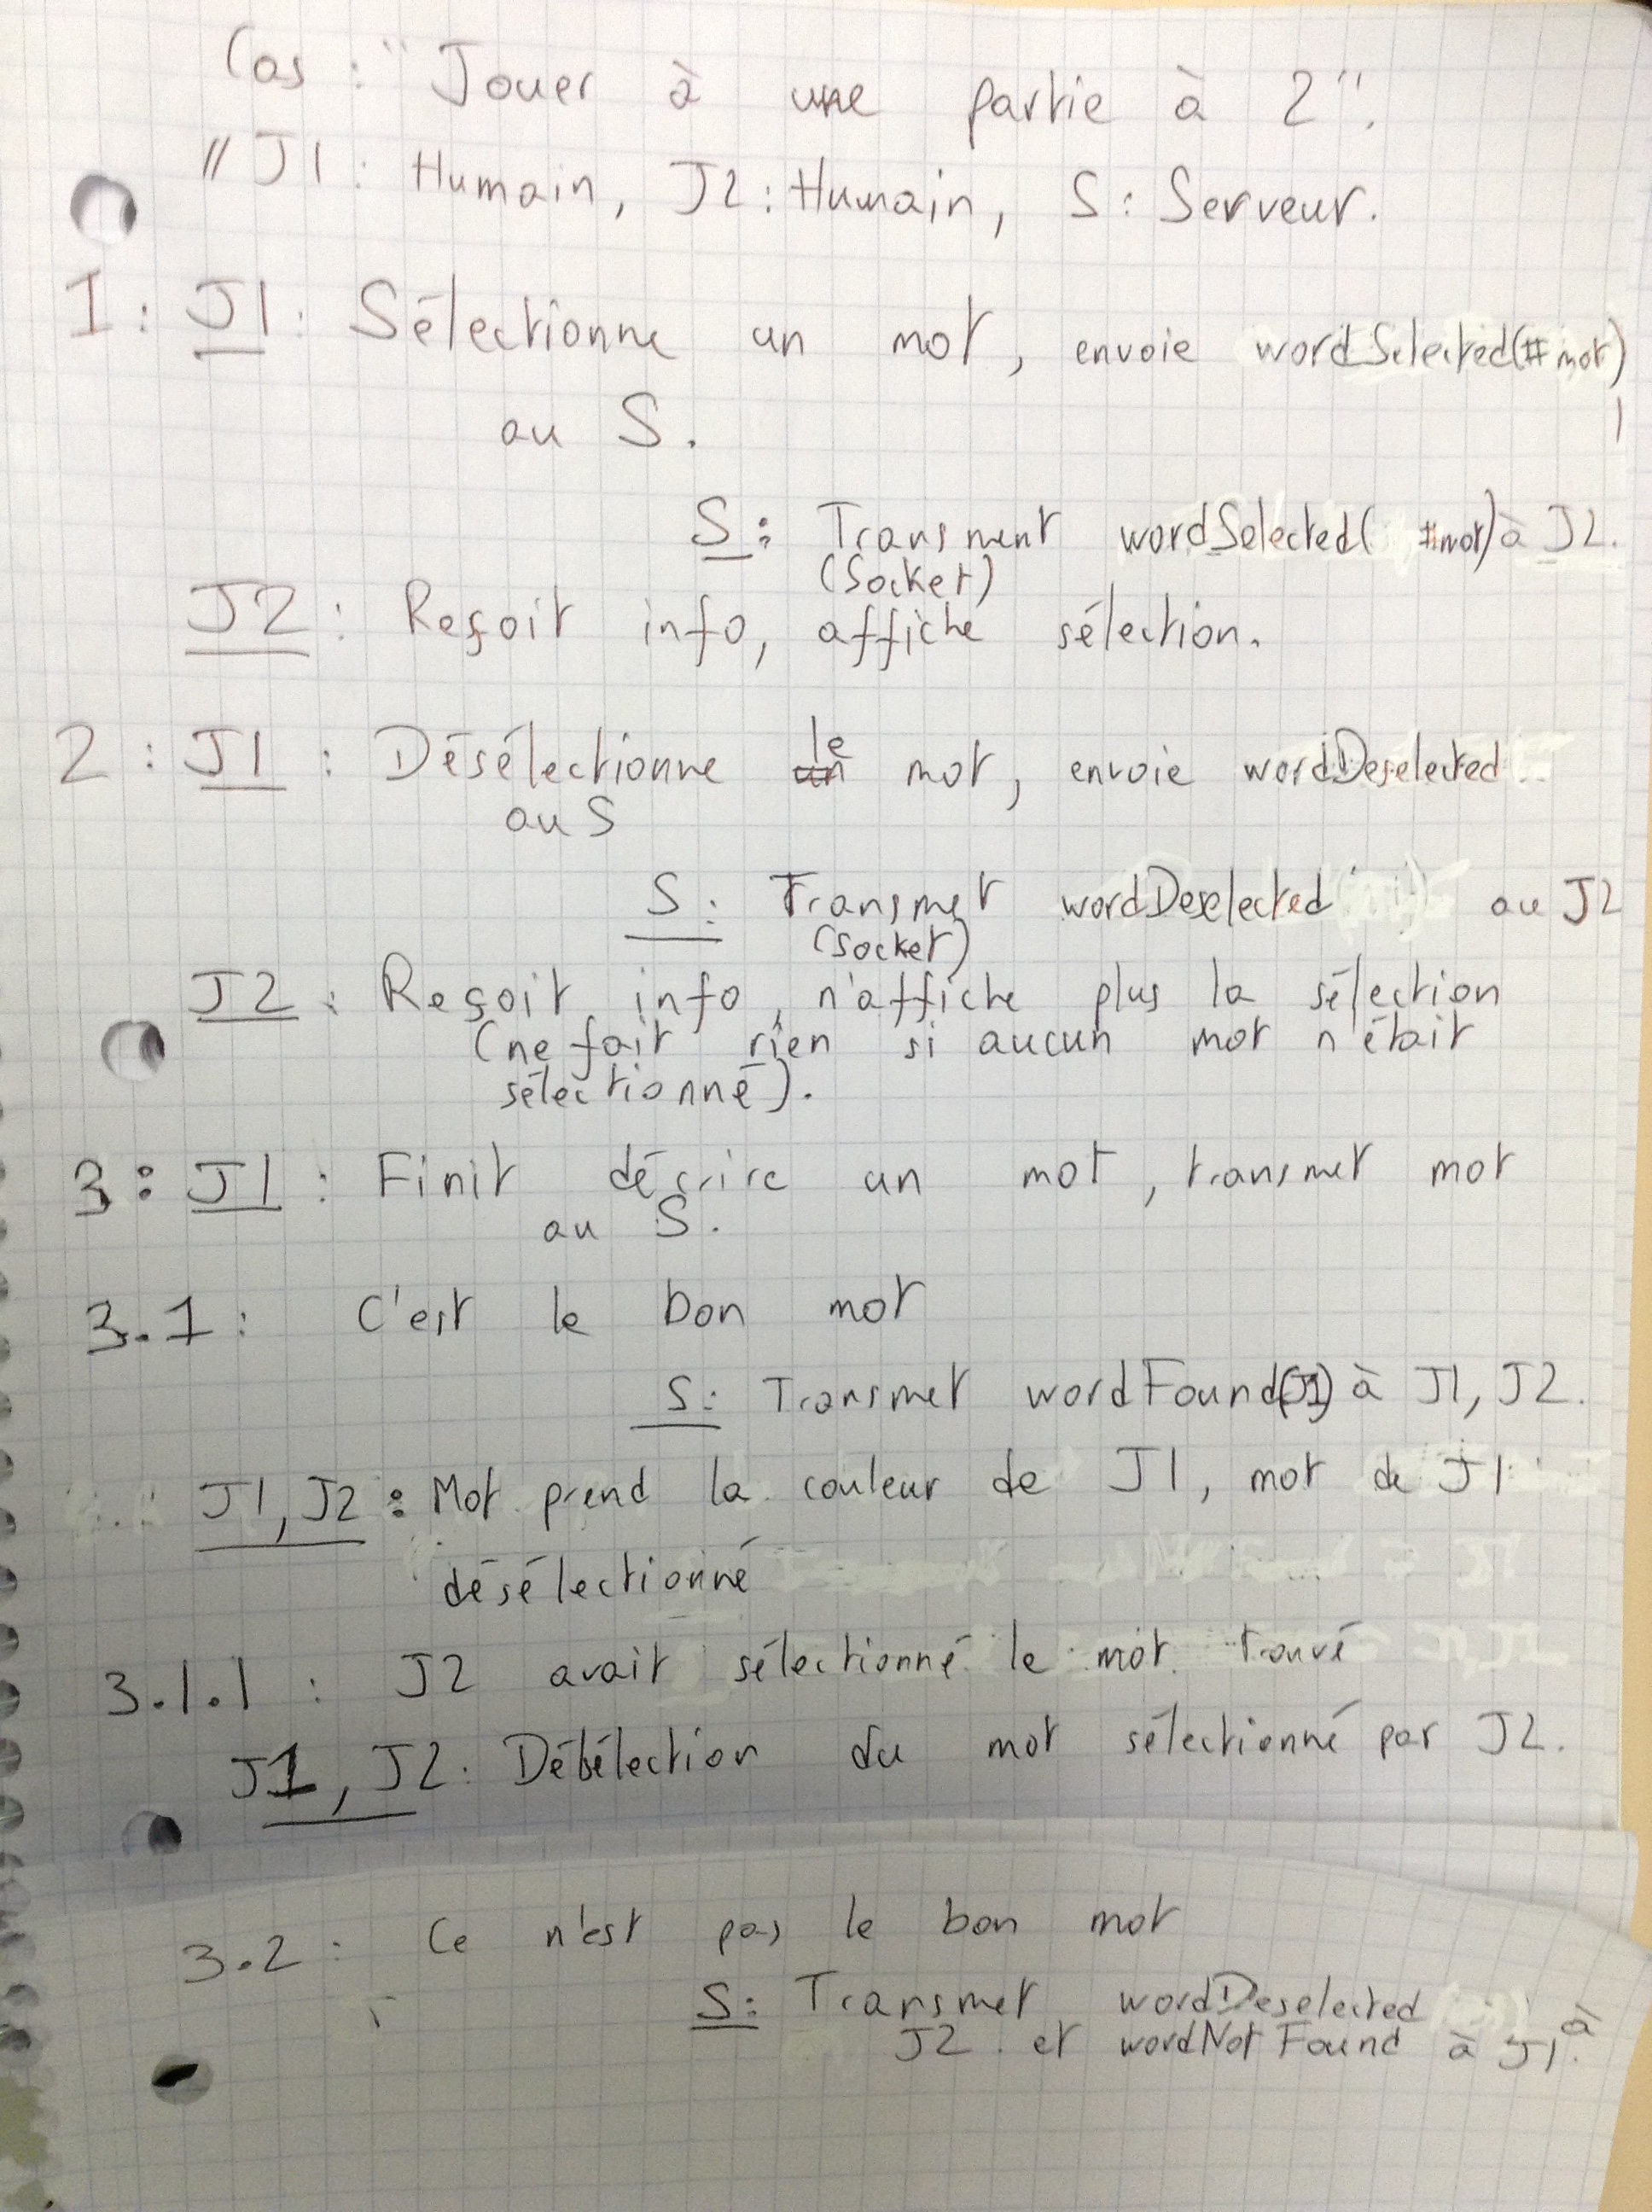 Cas : "Jouer à une partie à 2".
// J1 : Humain, J2 : Humain, S : Serveur.
1 : J1 : Sélectionne un mot, envoie wordSelected(#mot)
au S.
S : Transment wordSelected( #mot) à J2.
(Socket)
J2 : Reçoit info, affiche sélection.
2 : J1 : Désélectionne un le mot, envoie wordDeselected
au S
S : Transmet wordDeselected au J2
(socket)
J2 : Reçoit info, n'affiche plus la sélection
(ne fait rien si aucun mot n'était
sélectionné).
3 : J1 : Finit décrire un mot, transmet mot
au S.
3.1 : C'est le bon mot
S : Transmet wordFound(J1) à J1, J2.
J1, J2 : Mot prend la couleur de J1, mot de J1
désélectionné
3.1.1 : J2 avait sélectionné le mot trouvé
J1, J2 : Désélection du mot sélectionné par J2.
3.2 : Ce n'est pas le bon mot
S : Transmet wordDeselected à
J2 et wordNotFound à J1.